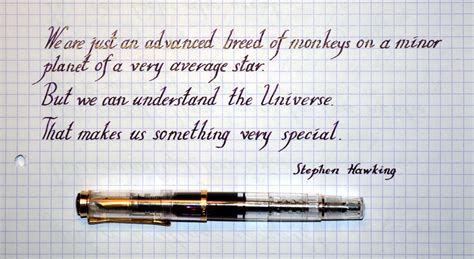 We are just an advanced breed of monkeys on a minor
planet of a very average star.
But we can understand the Universe.
That makes us something very special.
Stephen Hawking